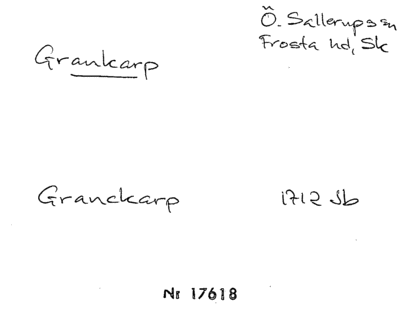 Ö. Sallerups sn
Frosta hd, Sk
Grankarp
Granckarp 1712 Jb
Nr 17618